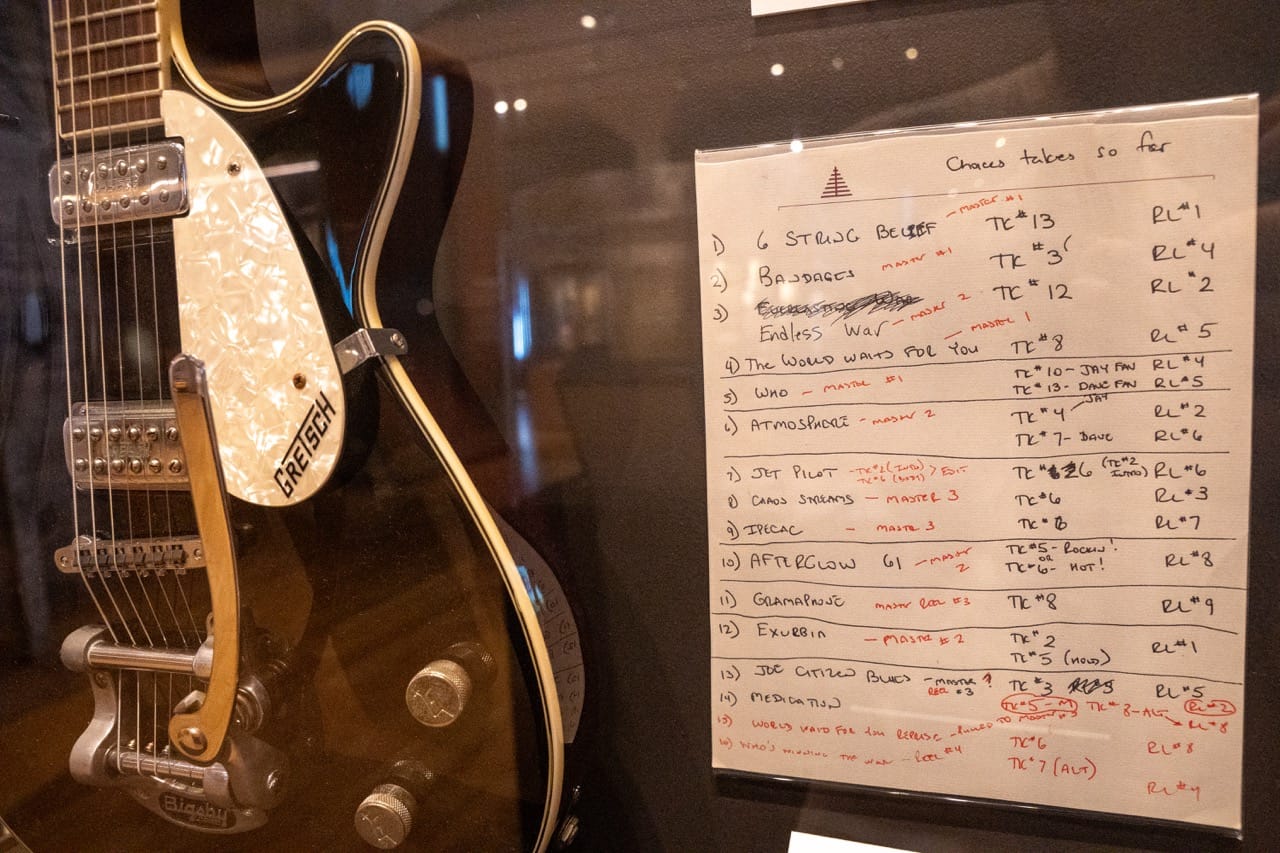 GRETSCH
Bigsby
Choices takes so far
1) 6 STRING BELIEF - MASTER #1 TK #13 RL #1
2) BANDAGES MASTER #1 TK #3 RL #4
3) TK #12 RL #2
Endless War - MASTER 2
4) The WORLD WAITS FOR YOU - MASTER 1 TK #8 RL #5
5) WHO - MASTER #1 TK #10 - JAY FAN RL #4
TK #13 - DAVE FAN RL #5
6) ATMOSPHERE - MASTER 2 TK #4 - JAY RL #2
TK #7 - DAVE RL #6
7) JET PILOT - TK #2 (INTRO) > EDIT TK # 6 (TK #2 INTRO) RL #6
TK #6 (BODY)
8) CHAOS STREAMS - MASTER 3 TK #6 RL #3
9) IPECAC - MASTER 3 TK # RL #7
10) AFTERGLOW 61 - MASTER 2 TK #5 - ROCKIN! RL #8
OR
TK #6 - HOT!
11) GRAMAPHONE MASTER REEL #3 TK #8 RL #9
12) EXURBIA - MASTER #2 TK #2 RL #1
TK #5 (HOLD)
13) JOE CITIZEN BLUES - MASTER REEL #3 ? TK #3 RL #5
14) MEDICATION TK #5 - M TK #8 - ALT RL #2
RL #8
15) WORLD WAITS FOR YOU REPRISE - TO MASTER #3 TK #6 RL #8
16) WHO'S MINDING THE WAR - REEL #4 TK #7 (ALT) RL #4